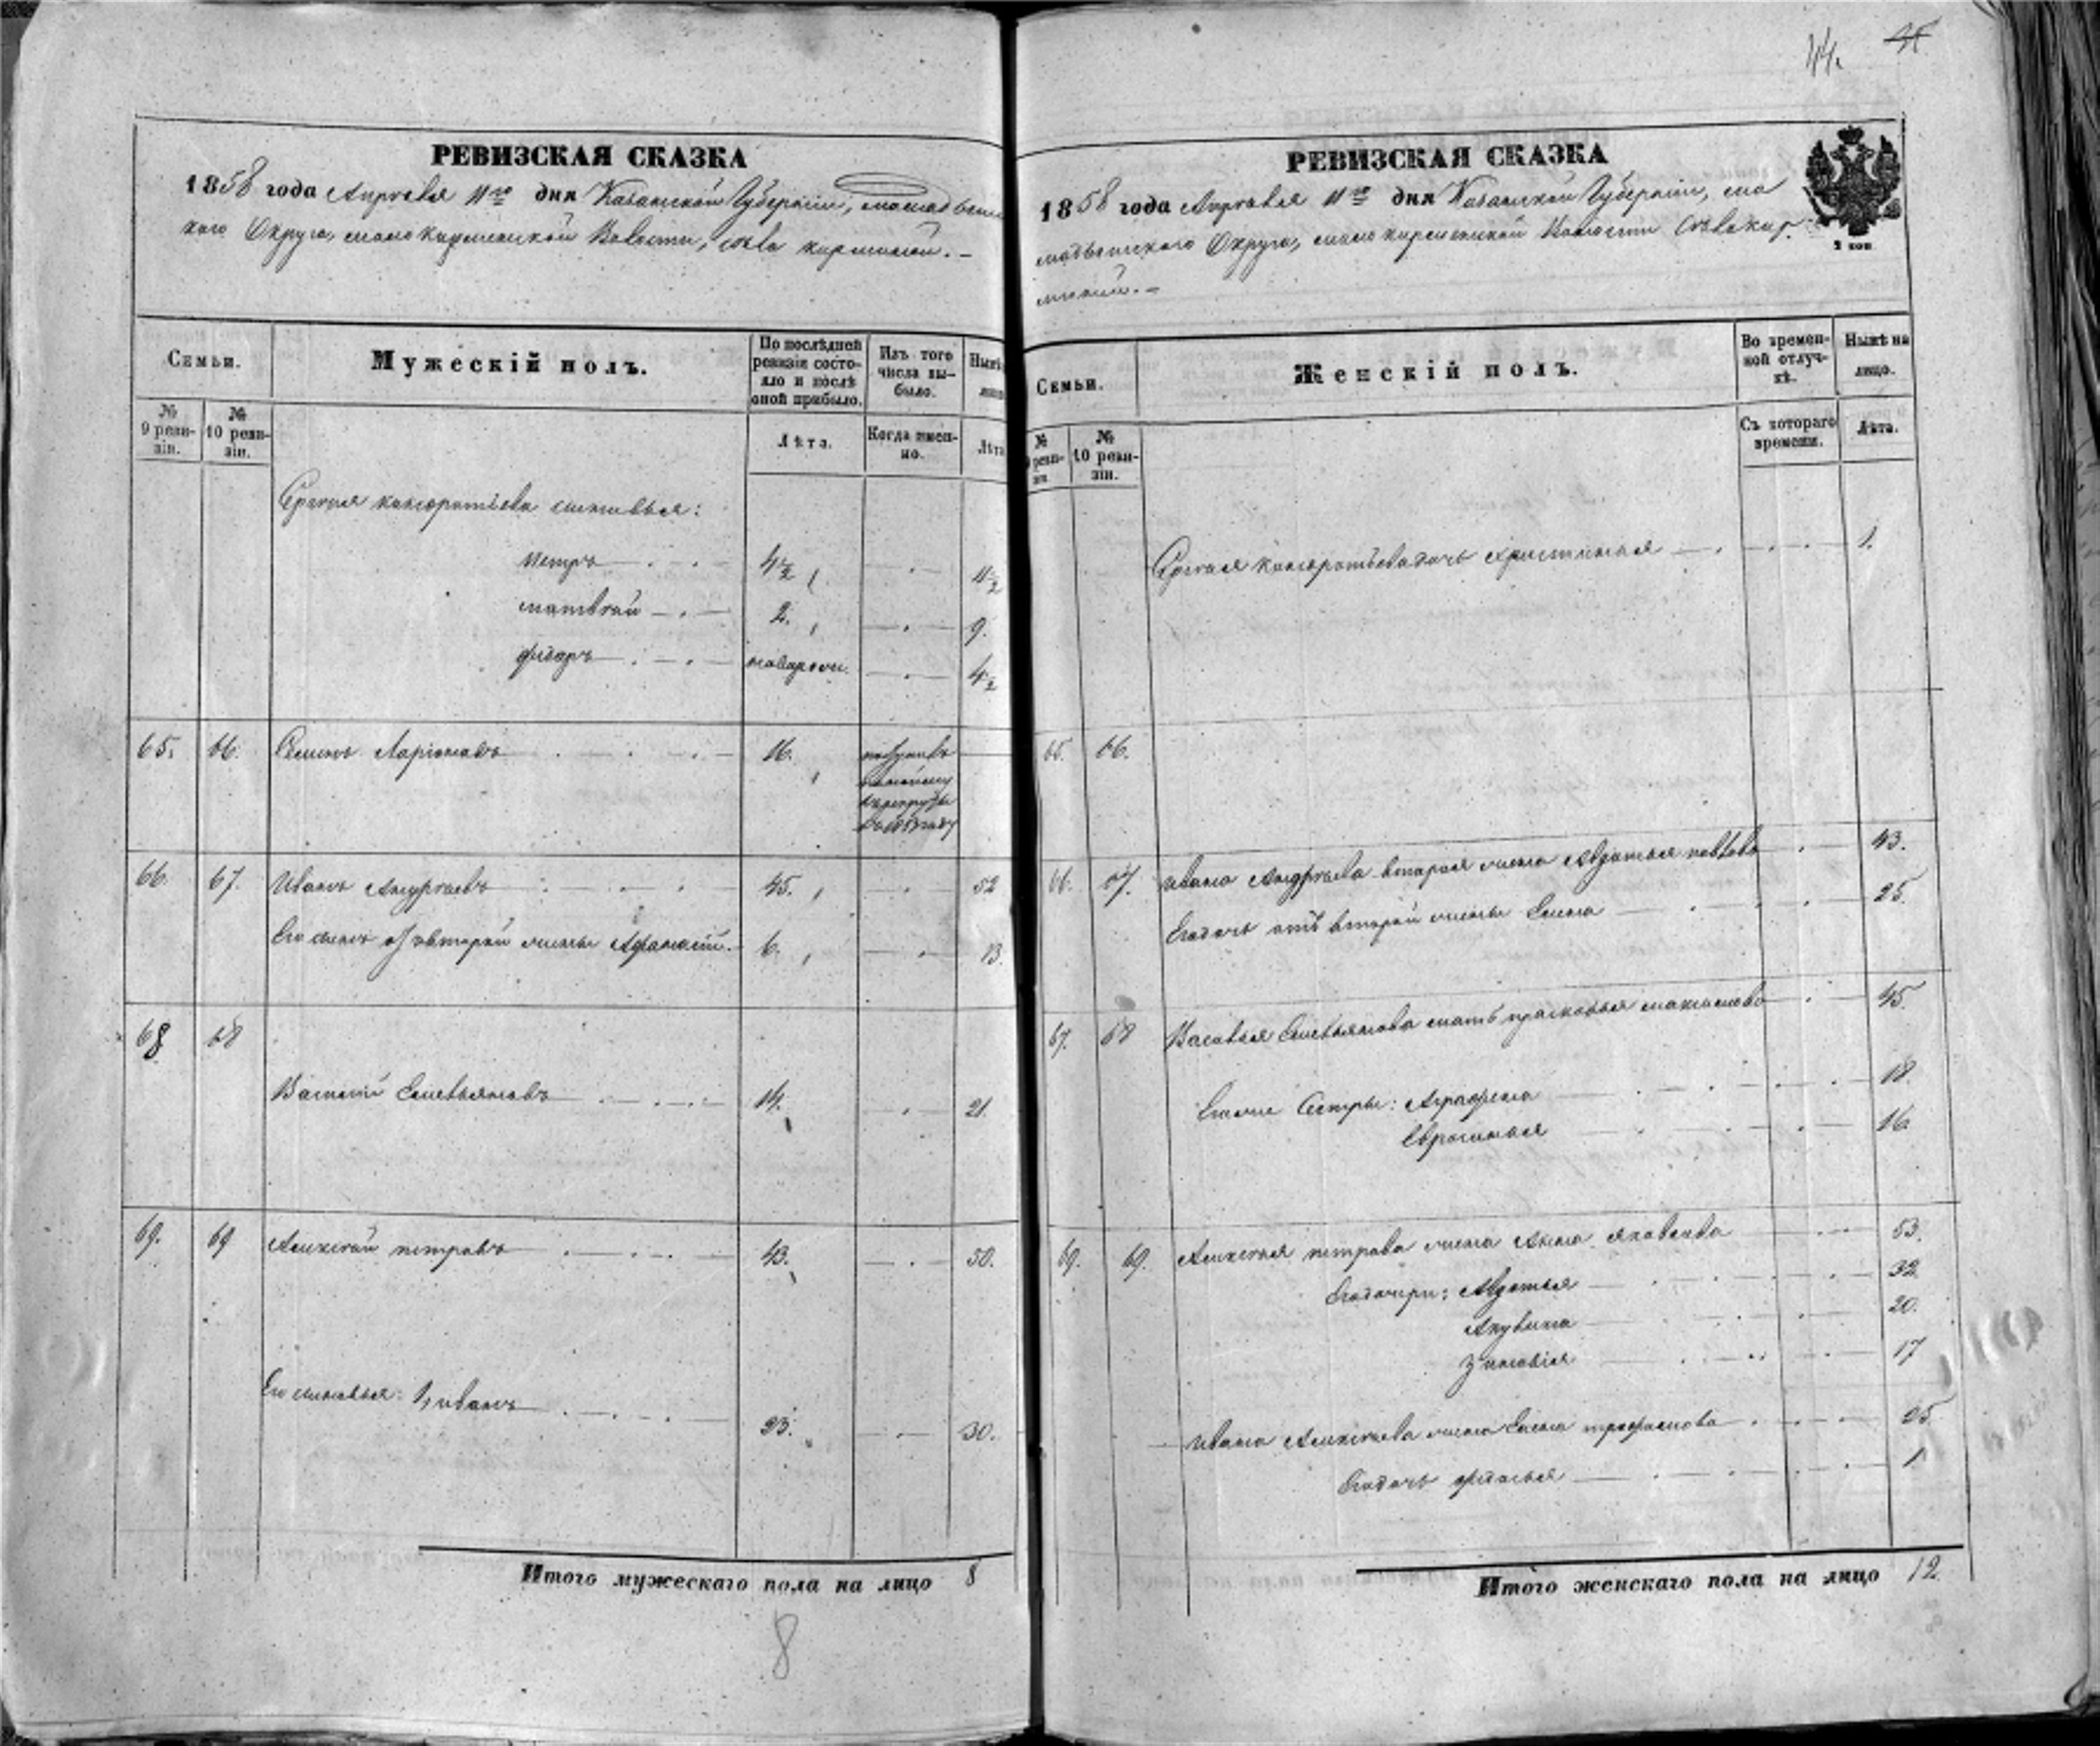 44.
45
РЕВИЗСКАЯ СКАЗКА
1858 года Апреля 11го дня Казанской Губернии, мамадышс
каго Округа, мало кирменской Волости, села кирменей. –
Семьи.
Мужескій полъ.
По послѣдней ревизіи состояло и послѣ оной прибыло.
Изъ того числа выбыло.
Нынѣ
№ 9 ревизіи.
№ 10 ревизіи.
Лѣта.
Когда именно.
Лѣта
Сергея кондратьева сыновья:
петръ 4½ 11½
матвей 2. 9.
федоръ новорож. 4½
65. 66. Семенъ Ларіоновъ 16.
66. 67. Иванъ Андреевъ 45. 52
Его сынъ отъ второй жены Афанасій. 6. 13.
68 68
Василій Емельяновъ 14. 21.
69. 69 Алексей петровъ 43. 50.
Его сыновья: 1, иванъ 23. 30.
Итого мужескаго пола на лицо 8
8
РЕВИЗСКАЯ СКАЗКА
1858 года Апреля 11го дня Казанской Губернии, ма
мадышского Округа, мало кирменской Волости Села кир
меней. –
2 коп
Семьи.
Женскій полъ.
Во временной отлучкѣ.
Нынѣ на лицо.
№ ревизіи.
№ 10 ревизіи.
Съ котораго времени.
Лѣта.
Сергея кондратьева дочь христинья 1.
65. 66.
66. 67. ивана Андреева вторая жена Авдотья павлова 43.
Его дочь отъ второй жены Елена 25.
67. 68 Василья Емельянова мать прасковья максимова 45.
Его же Сестры: Аграфена 18.
Евросинья 16
69. 69. Алексея петрова жена Анна яковлева 53.
Его дочери: Авдотья 32.
Акулина 20.
Зиновія 17
ивана Алексеева жена Елена трофимова 25.
Его дочь 1
Итого женскаго пола на лицо 12.